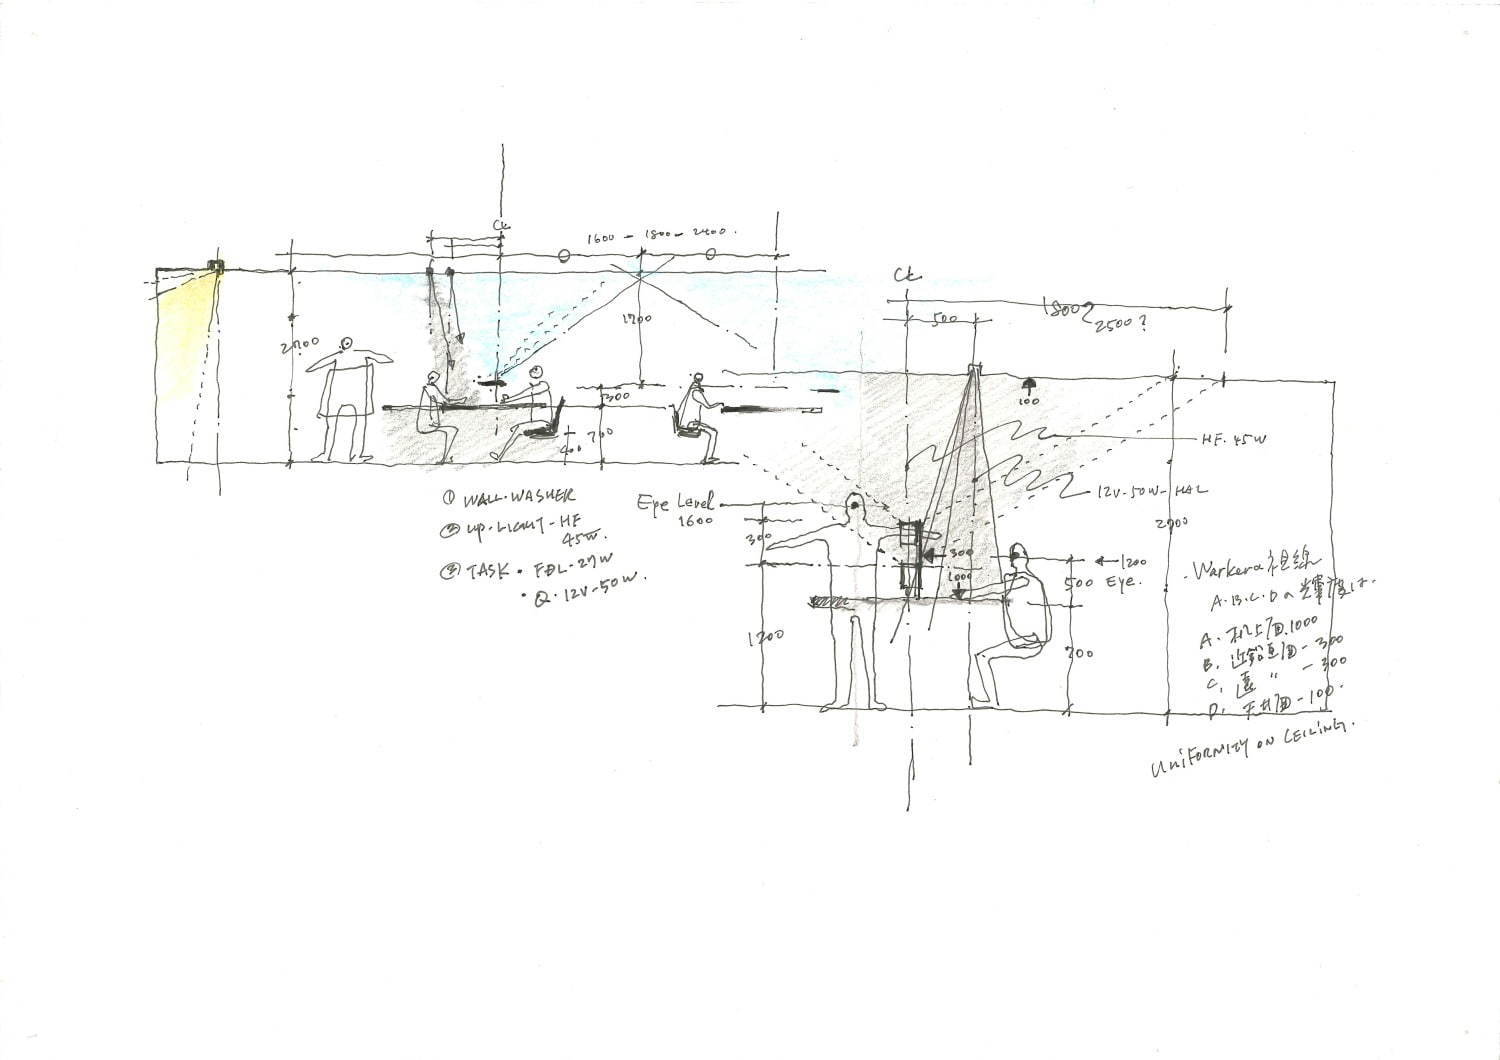 CL
1600 - 1800 - 2400.
2700
1700
300
700
400
① WALL-WASHER
② UP-LIGHT-HF
45W.
③ TASK・FDL-27W
・Q・12V-50W.
CL
500
1800~
2500?
100
HF.45W
12V-50W-HAL
2700
Eye Level
1600
300
300
1000
1200
500 EYE.
700
1300
.Workerの視線
A.B.C.Dの輝度は.
A. 机上面.1000
B. 近鉛直面-300
C. 遠 〃 -300
D. 天井面-100.
UNIFORMITY ON CEILING.